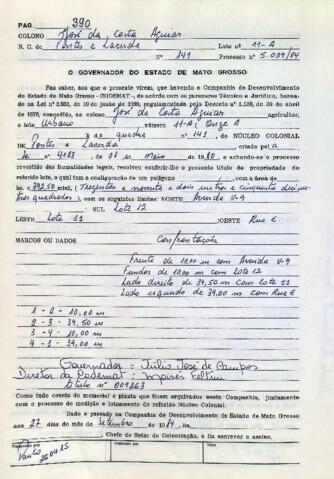 PAG 390
COLONO José da Costa Aguiar
N. C. de Pontes e Lacerda Lote nº 11-A
Nº 141 Processo nº 5.039/84
O GOVERNADOR DO ESTADO DE MATO GROSSO
Faz saber, aos que o presente virem, que havendo a Companhia de Desenvolvimento
do Estado de Mato Grosso - CODEMAT -, de acordo com os processos Técnico e Jurídico, baseado
na Lei nº 3.933, de 10 de junho de 1979, regulamentada pelo Decreto nº 1.138, de 30 de abril
de 1979, concedido, ao colono José da Costa Aguiar agricultor,
o lote Urbano número 11-A, Onze A
da quadra nº 141, DO NÚCLEO COLONIAL
DE Pontes e Lacerda criado pela
Lei nº 4133 de 08 de maio de 19 80, e achando-se o processo
revestido das formalidades legais, resolveu conferir-lhe o presente título de propriedade do
referido lote, o qual tem a configuração de um polígono com a área de
392,50 mts2, (Trezentos e noventa e dois metros e cinquenta decíme-
tros quadrados), com os seguintes limites: NORTE Avenida V-9
SUL Lote 12
LESTE Lote 11 OESTE Rua E
MARCOS OU DADOS Confrontações
Frente de 10,00 m com Avenida V-9
Fundos de 10,00 m com lote 12
Lado direito de 39,50 m com lote 11
Lado esquerdo de 39,00 m com Rua E
1 - 2 - 10,00 m
2 - 3 - 39,50 m
3 - 4 - 10,00 m
4 - 1 - 39,00 m
Governador = Júlio José de Campos
Diretor da Codemat = Moisés Feltrin
Título nº 009263
Como tudo consta do memorial e planta que ficam arquivados nesta Companhia, juntamente
com o processo de medição e loteamento do referido Núcleo Colonial.
Dado e passado na Companhia de Desenvolvimento do Estado de Mato Grosso
aos 27 dias do mês de Setembro de 1984, Eu,
Chefe do Setor de Colonização, o fiz escrever e assino.
Conferido por
Visto